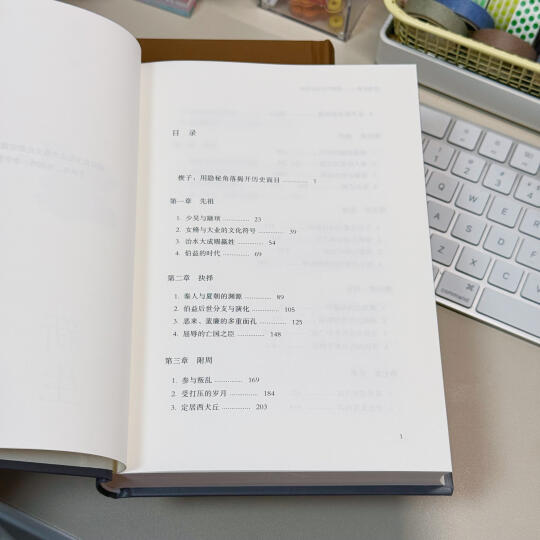 目 录
楔子：用隐秘角落揭开历史面目 ………… 1
第一章 先祖
1. 少昊与颛顼 ………… 23
2. 女脩与大业的文化符号 ………… 39
3. 治水大成赐嬴姓 ………… 54
4. 伯益的时代 ………… 69
第二章 抉择
1. 秦人与夏朝的渊源 ………… 89
2. 伯益后世分支与演化 ………… 105
3. 恶来、蜚廉的多重面孔 ………… 125
4. 屈辱的亡国之臣 ………… 148
第三章 附周
1. 参与叛乱 ………… 169
2. 受打压的岁月 ………… 184
3. 定居西犬丘 ………… 203
1
command